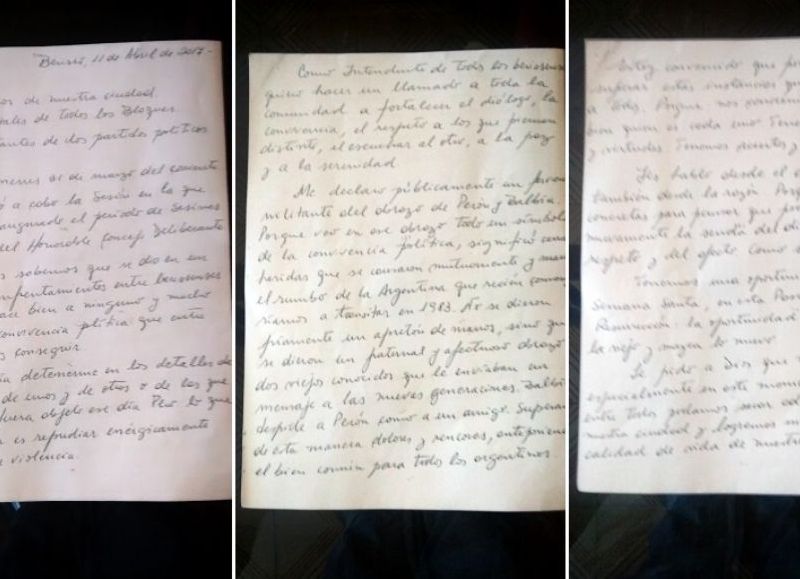 Berisso, 11 de Abril de 2017-
de nuestra ciudad.
de todos los Bloques.
de los partidos políticos
de marzo del corriente
a cabo la Sesión en la que
el período de Sesiones
del Honorable Concejo Deliberante
sabemos que se dio en un
enfrentamientos entre berissenses
bien a ninguno y mucho
convivencia plítica que entre
conseguir.
detenerme en los detalles de
de unos y de otros o de los que
fuera objeto ese día Pero lo que
es repudiar enérgicamente
violencia.
Como Intendente de Todos los
quiero hacer un llamado a toda la
comunidad a fortalecer el diálogo, la
convivencia, el respeto a los que piensan
distinto, el escuchar al otro, a la paz
y a la serenidad
Me declaro públicamente un
militante del abrazo de Perón y Balbín.
Porque veo en ese abrazo todo un símbolo
de la convivencia política, significó
heridas que se causaron mutuamente y
el rumbo de la Argentina que recién
a transitar en 1983. No se dieron
friamente un apretón de manos, sino que
se dieron un fraternal y afectuoso abrazo
dos viejos conocidos que le enviaban un
mensaje a las nuevas generaciones. Balbín
despide a Perón como a un amigo.
de esta manera dolores y rencores,
el bien común para todos los argentinos.
Estoy convencido que
superar estas instancias que
a todos. Porque nos conocemos
bien quien es cada uno Tenemos
y virtudes. Tenemos aciertos y
Les hablo desde el
también desde la razón.
concretas para pensar que
nuevamente la senda del
respeto y del afecto como
Tenemos una
Semana Santa, en esta
Resurrección: la oportunidad
lo viejo y nazca lo nuevo.
Le pido a Dios que
especialmente en este
entre todos podamos
nuestra ciudad y logremos
calidad de vida de